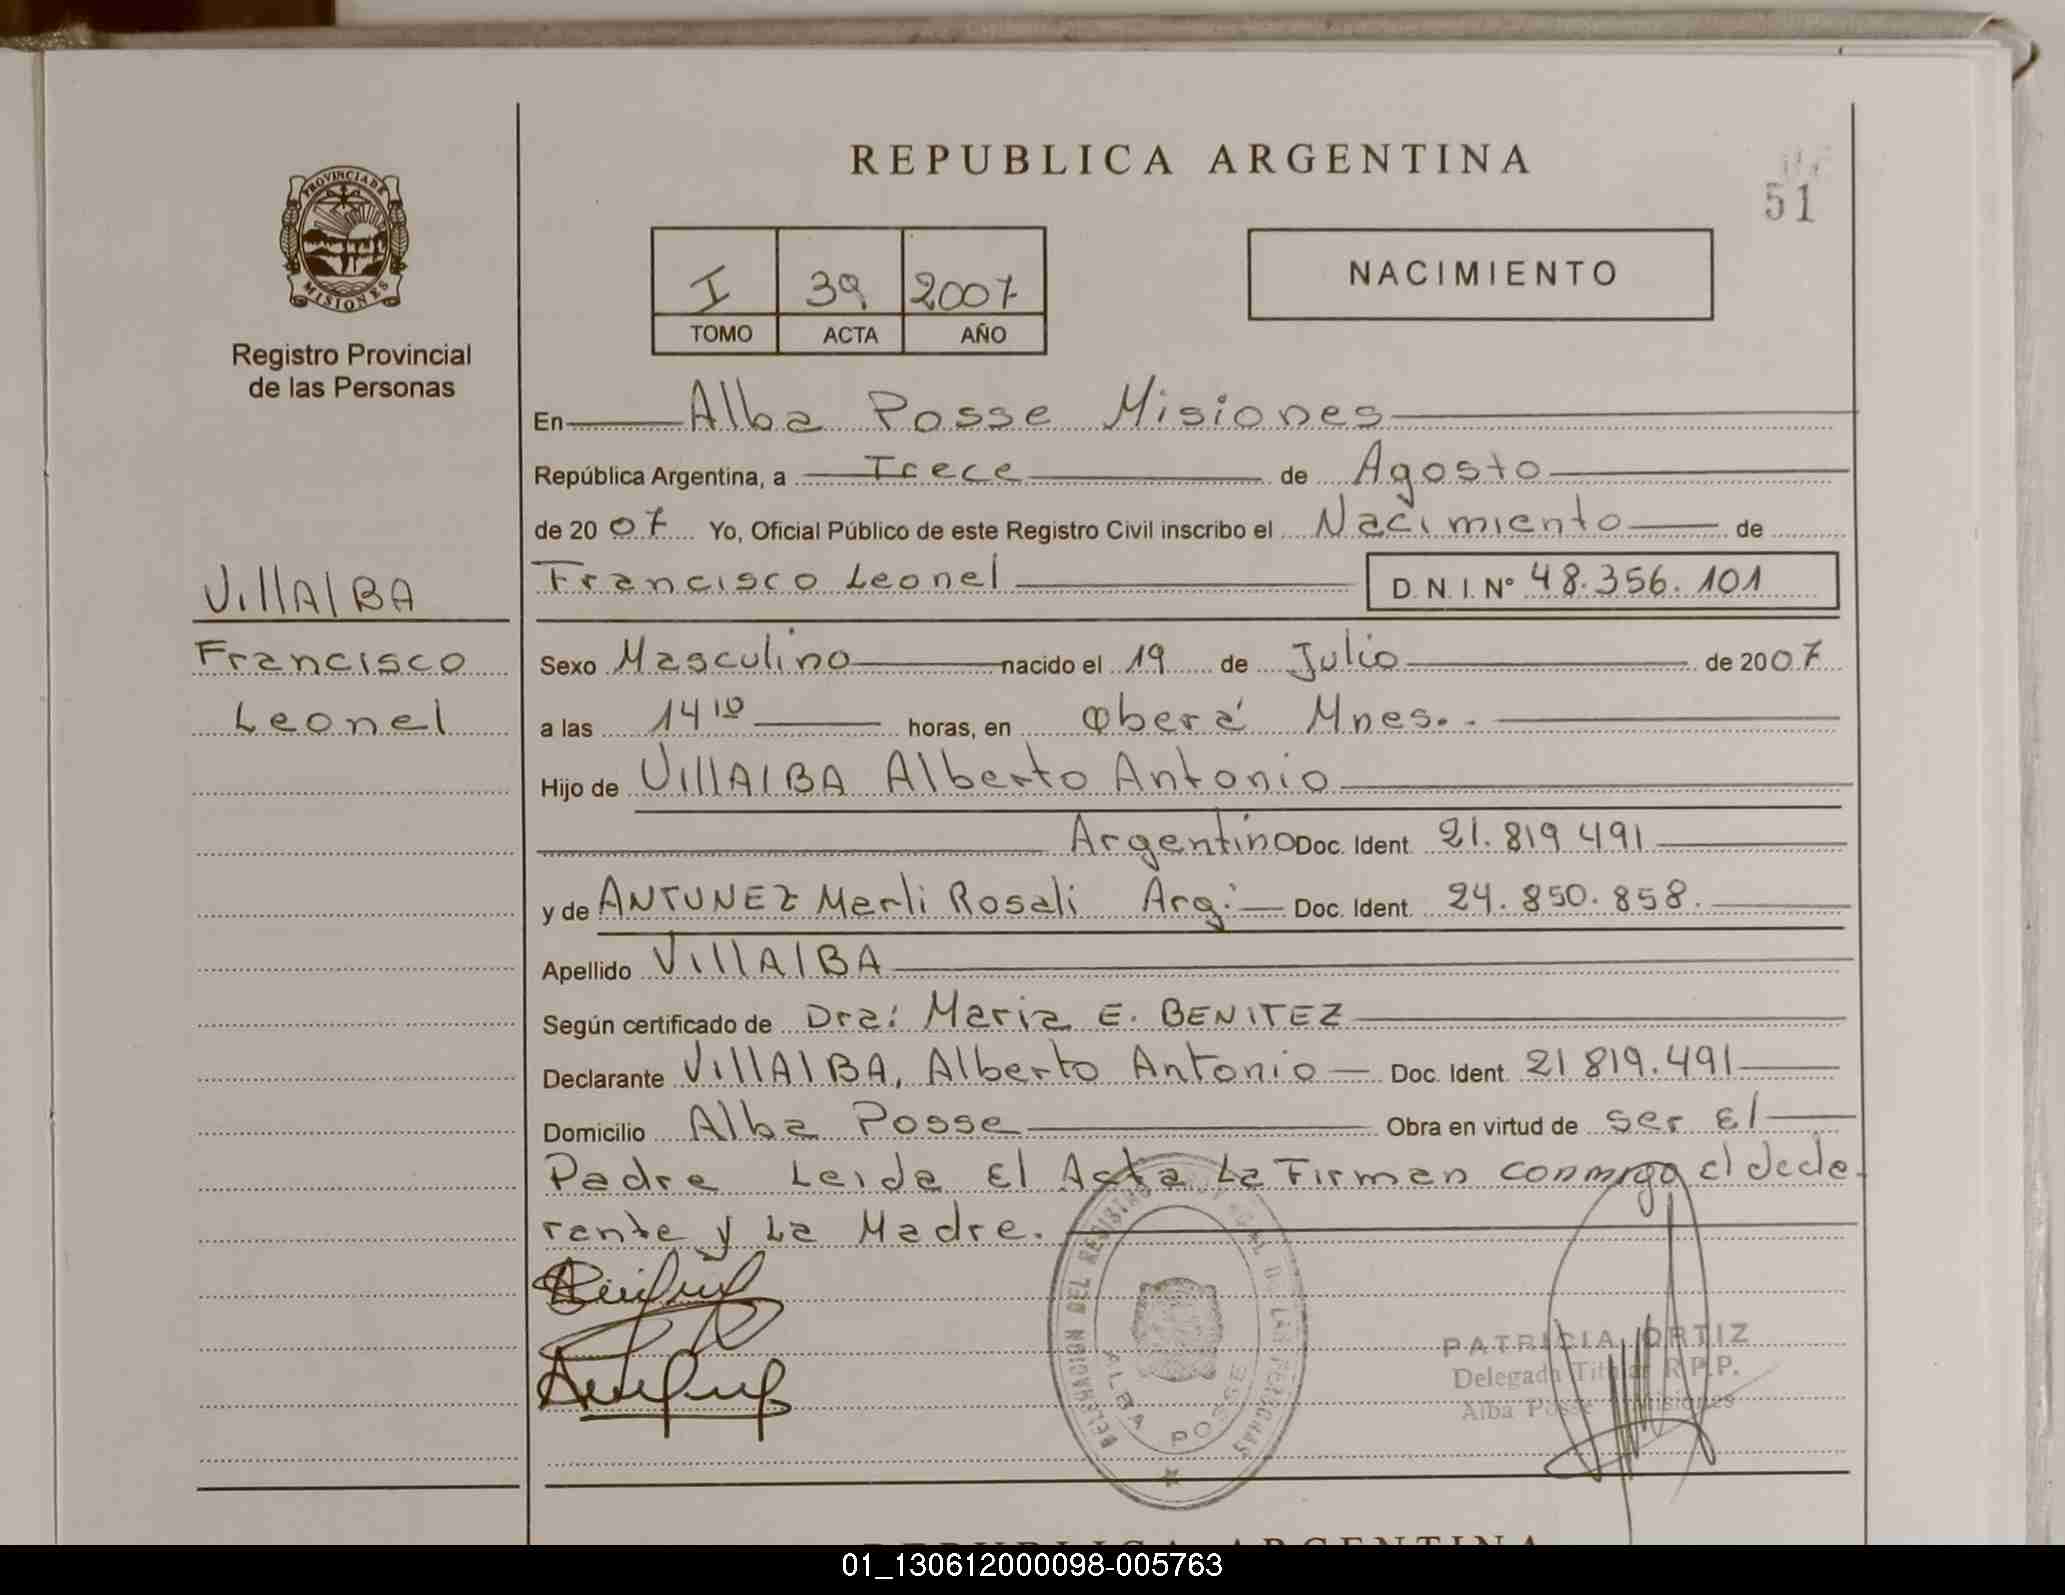 REPUBLICA ARGENTINA
51
PROVINCIA DE
MISIONES
Registro Provincial
de las Personas
I 39 2007
TOMO ACTA AÑO
NACIMIENTO
En Alba Posse Misiones
República Argentina, a Trece de Agosto
de 20 07 Yo, Oficial Público de este Registro Civil inscribo el Nacimiento de
VIllAlBA
Francisco Leonel D.N.I. Nº 48.356.101
Francisco
Sexo Masculino nacido el 19 de Julio de 2007
Leonel
a las 14 10 horas, en Oberá Mnes.
Hijo de VIllAlBA Alberto Antonio
Argentino Doc. Ident. 21.819 491
y de ANTUNEZ Merli Rosali Arg: Doc. Ident. 24.850.858.
Apellido VIllAlBA
Según certificado de Dra: Maria E. BENITEZ
Declarante VIllAlBA, Alberto Antonio Doc. Ident. 21 819.491
Domicilio Alba Posse Obra en virtud de ser El
Padre Leida El Acta La Firman conmigo el decla-
rante y La Madre.
DEL REGISTRO DE LAS PERSONAS
ALBA POSSE
PATRICIA ORTIZ
Delegada Titular R.P.P.
Alba Posse Misiones
REPUBLICA ARGENTINA
01_130612000098-005763